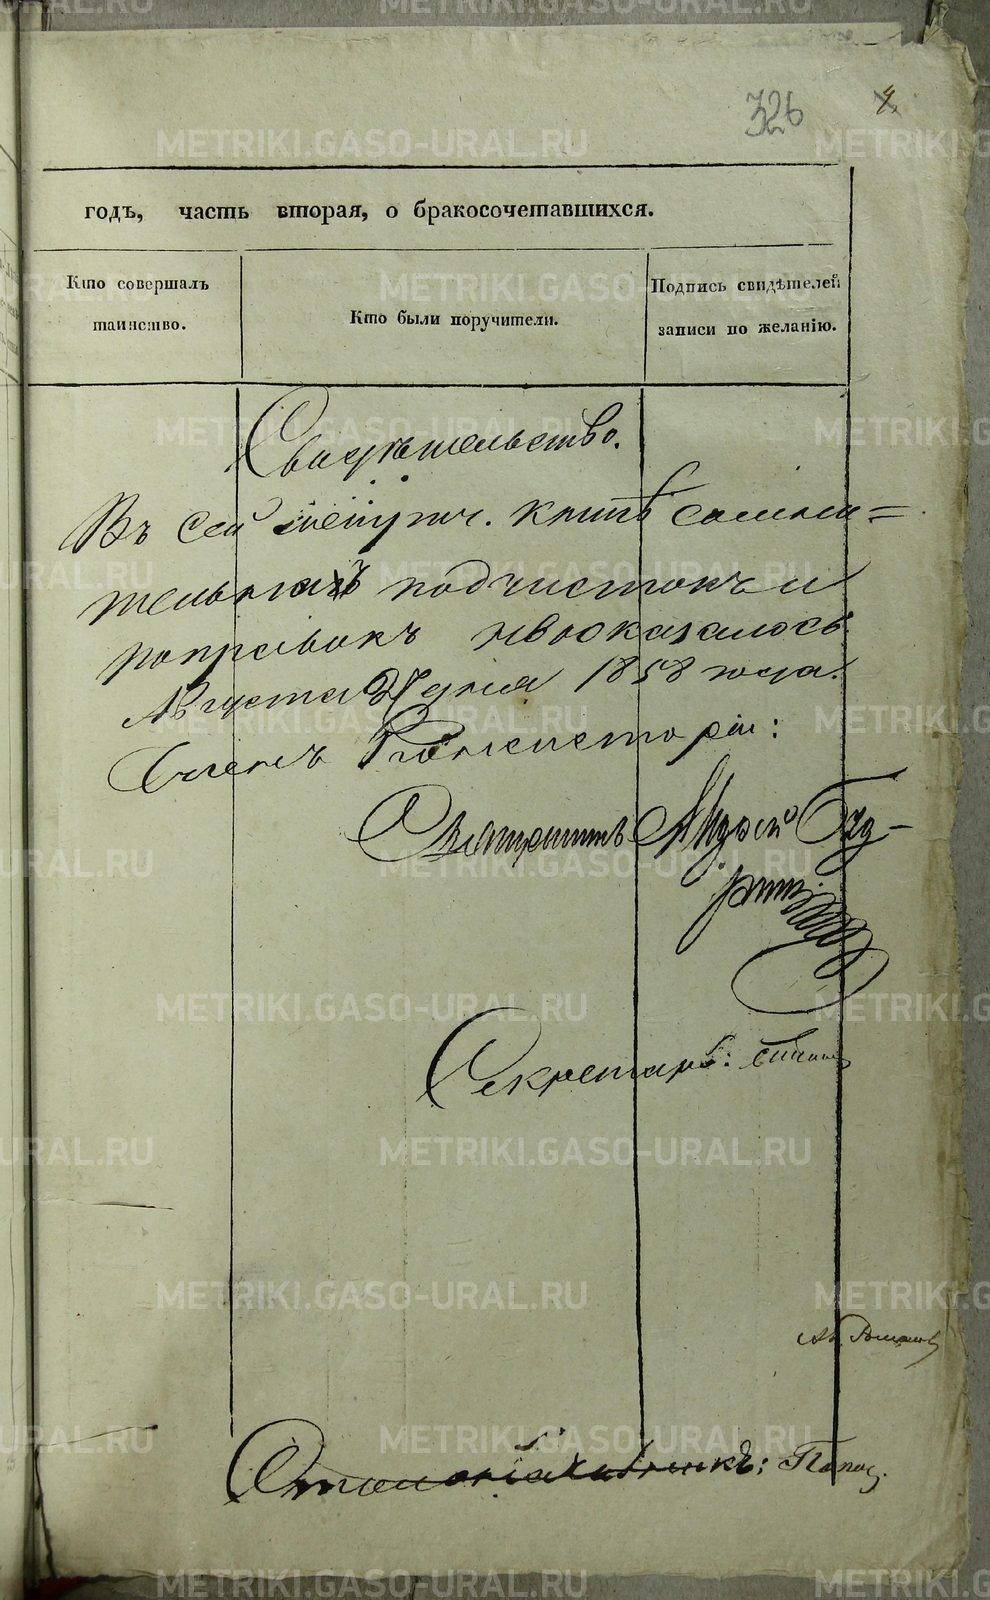 326
4
годъ, часть вторая, о бракосочетавшихся.
Кто совершалъ
таинство.
Кто были поручители.
Подпись свидѣтелей
записи по желанію.
Свидѣтельство.
Въ сей метрич. книгѣ сомни=
тельныхъ подчистокъ и
поправокъ не оказалось
Августа 27 дня 1858 года.
Членъ Консисторіи:
Секретарь:
Столоначальникъ: Попов
METRIKI.GASO-URAL.RU